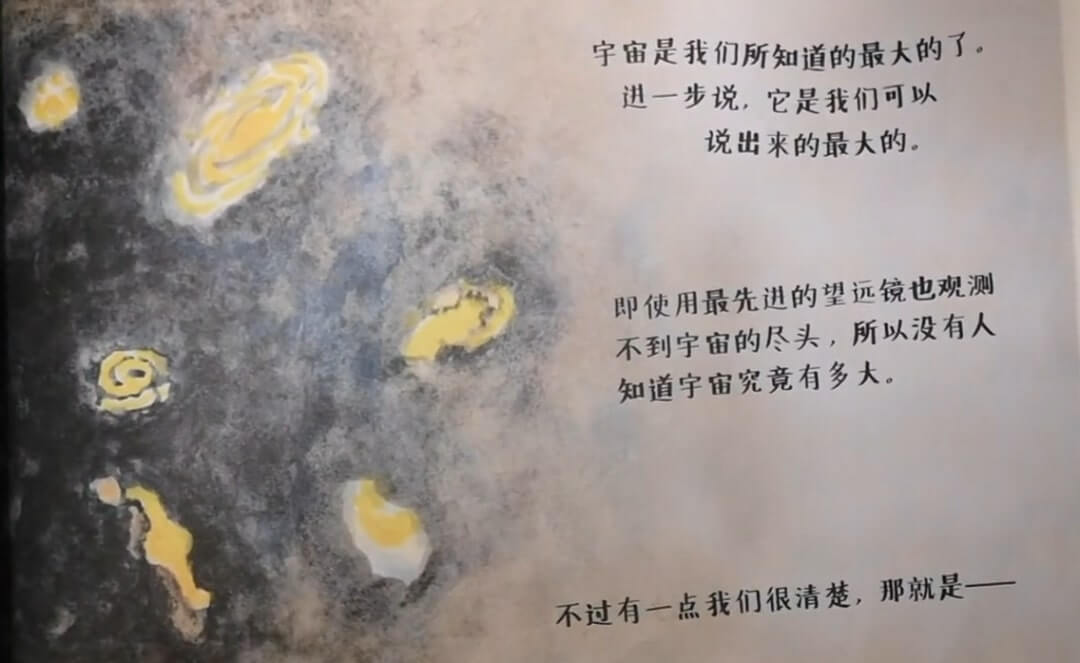 宇宙是我们所知道的最大的了。
进一步说，它是我们可以
说出来的最大的。
即使用最先进的望远镜也观测
不到宇宙的尽头，所以没有人
知道宇宙究竟有多大。
不过有一点我们很清楚，那就是——